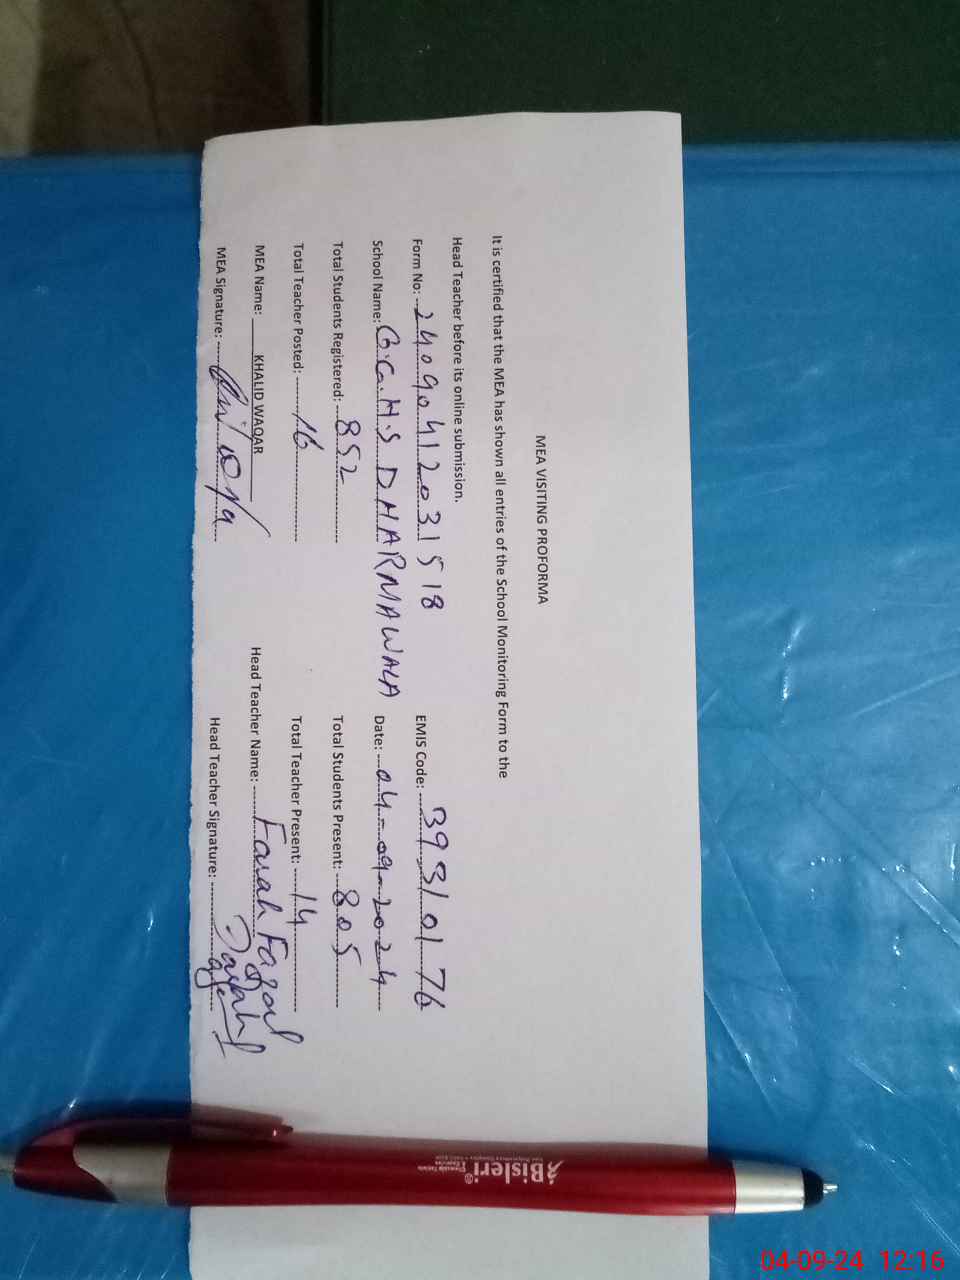 MEA VISITING PROFORMA
It is certified that the MEA has shown all entries of the School Monitoring Form to the
Head Teacher before its online submission.
Form No: 24090412031518 EMIS Code: 39310176
School Name: G.G.H.S DHARMAWALA Date: 04-09-2024
Total Students Registered: 852 Total Students Present: 805
Total Teacher Posted: 16 Total Teacher Present: 14
MEA Name: KHALID WAQAR Head Teacher Name: Farah Fazal
MEA Signature: Head Teacher Signature:
Bisleri®
04-09-24 12:16